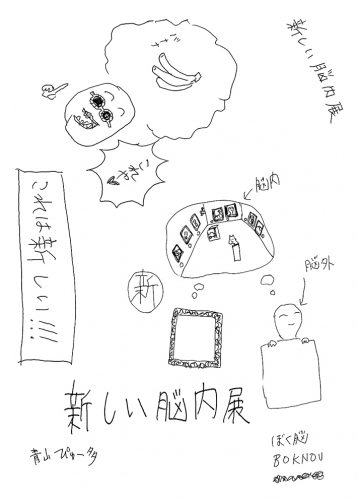 新しい脳内展
バナナ
きたい
脳内
これは新しい!!!
脳外
新
新しい脳内展
青山ぴゅータタ
ぼく脳
BOKNOU